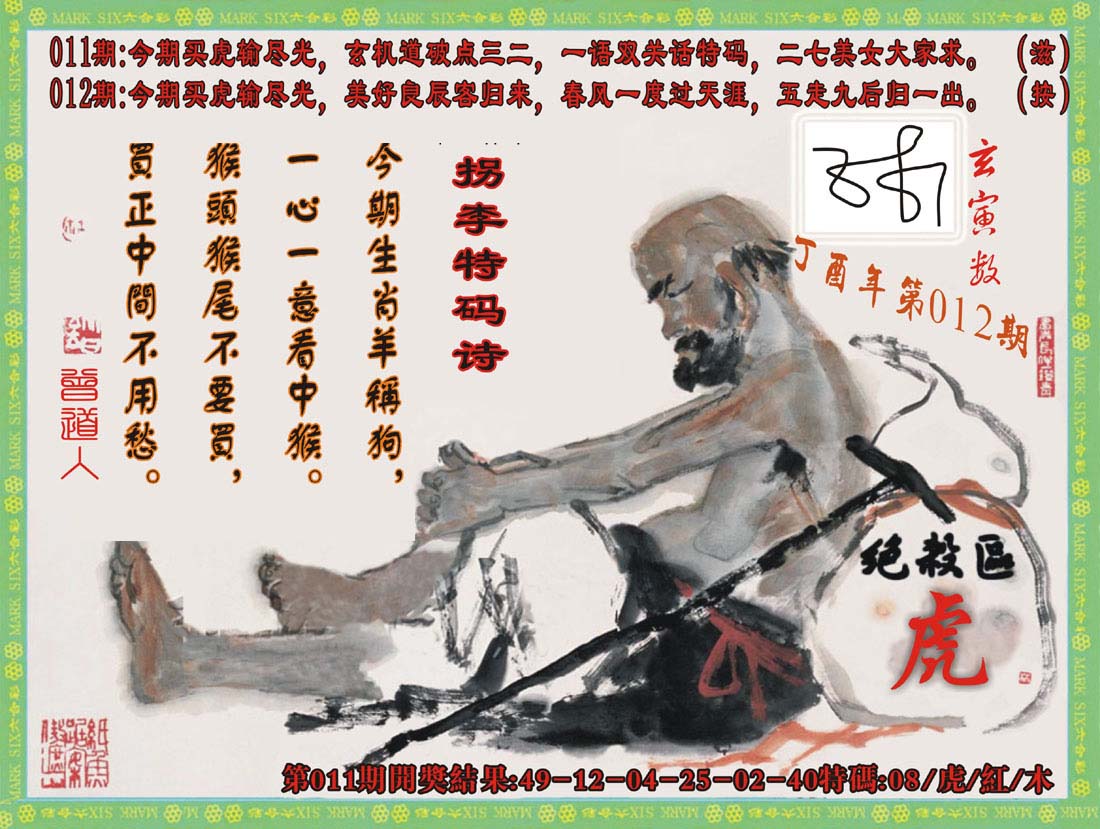 MARK SIX六合彩
011期:今期买虎输尽光，玄机道破点三二，一语双关话特码，二七美女大家求。（滋）
012期:今期买虎输尽光，美好良辰客归来，春风一度过天涯，五走九后归一出。（按）
玄寅数
丁酉年第012期
拐李特码诗
今期生肖羊稱狗，
一心一意看中猴。
猴頭猴尾不要買，
買正中間不用愁。
曾道人
绝殺區
虎
第011期開獎結果:49-12-04-25-02-40特碼:08/虎/紅/木